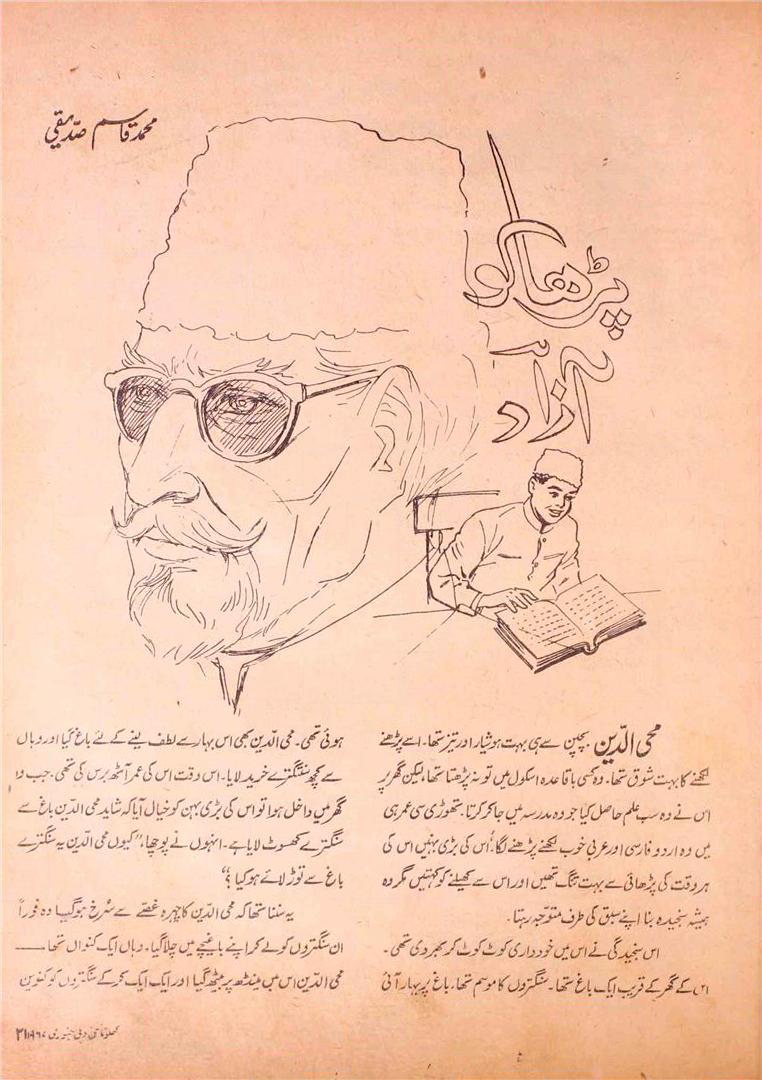 محمد قاسم صدیقی
پڑھاکو
آزاد
محی الدّین بچپن سے ہی بہت ہوشیار اور تیز تھا۔ اسے پڑھنے
لکھنے کا بہت شوق تھا۔ وہ کسی باقاعدہ اسکول میں تو نہ پڑھتا تھا، لیکن گھر پر
اس نے وہ سب علم حاصل کیا جو وہ مدرسہ میں جا کر کرتا۔ تھوڑی سی عمر ہی
میں وہ اردو فارسی اور عربی خوب لکھنے پڑھنے لگا۔ اُس کی بڑی بہنیں اس کی
ہر وقت کی پڑھائی سے بہت تنگ تھیں اور اس سے کھیلنے کو کہتیں مگر وہ
ہمیشہ سنجیدہ بنا اپنے سبق کی طرف متوجّہ رہتا۔
اس سنجیدگی نے اس میں خود داری کوٹ کوٹ کر بھر دی تھی۔
اس کے گھر کے قریب ایک باغ تھا۔ سنگتروں کا موسم تھا۔ باغ پر بہار آئی
ہوئی تھی۔ محی الدّین بھی اس بہار سے لطف لینے کے لئے باغ گیا اور وہاں
سے کچھ سنگترے خرید لایا۔ اس وقت اس کی عمر آٹھ برس کی تھی۔ جب وہ
گھر میں داخل ہوا تو اس کی بڑی بہن کو خیال آیا کہ شاید محی الدّین باغ سے
سنگترے کھسوٹ لایا ہے۔ انہوں نے پوچھا، ”کیوں محی الدّین یہ سنگترے
باغ سے توڑ لائے ہو کیا؟“
یہ سننا تھا کہ محی الدّین کا چہرہ غصّے سے سُرخ ہو گیا وہ فوراً
ان سنگتروں کو لے کر اپنے باغیچے میں چلا گیا۔ وہاں ایک کنواں تھا ــــــ
محی الدّین اس میں مینڈھ پر بیٹھ گیا اور ایک ایک کر کے سنگتروں کو کنویں
کھلونا نئی دہلی جنوری ۱۹۶۷ ۳۱